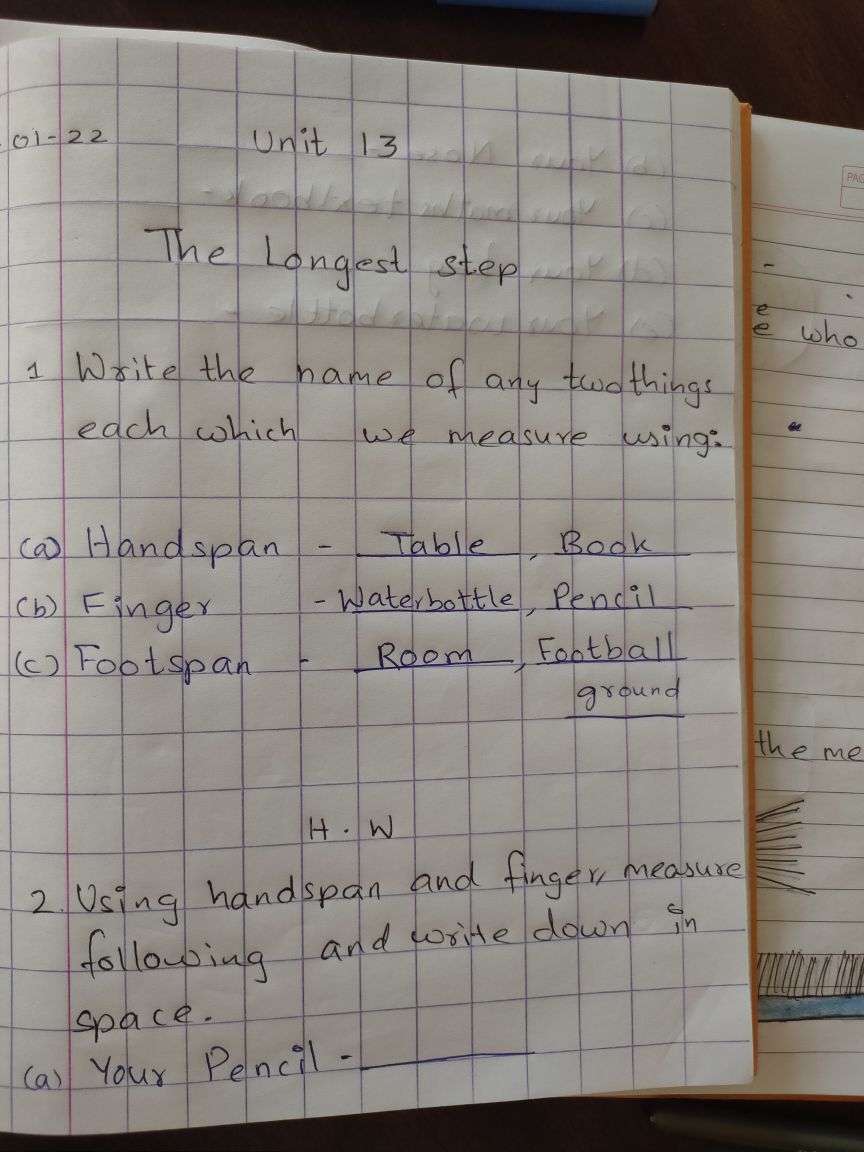 01-22
Unit 13
The Longest step
1 Write the name of any two things
each which we measure using:
(a) Handspan - Table, Book
(b) Finger - Waterbottle, Pencil
(c) Footspan - Room, Football
ground
H.W
2. Using handspan and finger, measure
following and write down in
space.
(a) Your Pencil -
PAG
e
e who
the me